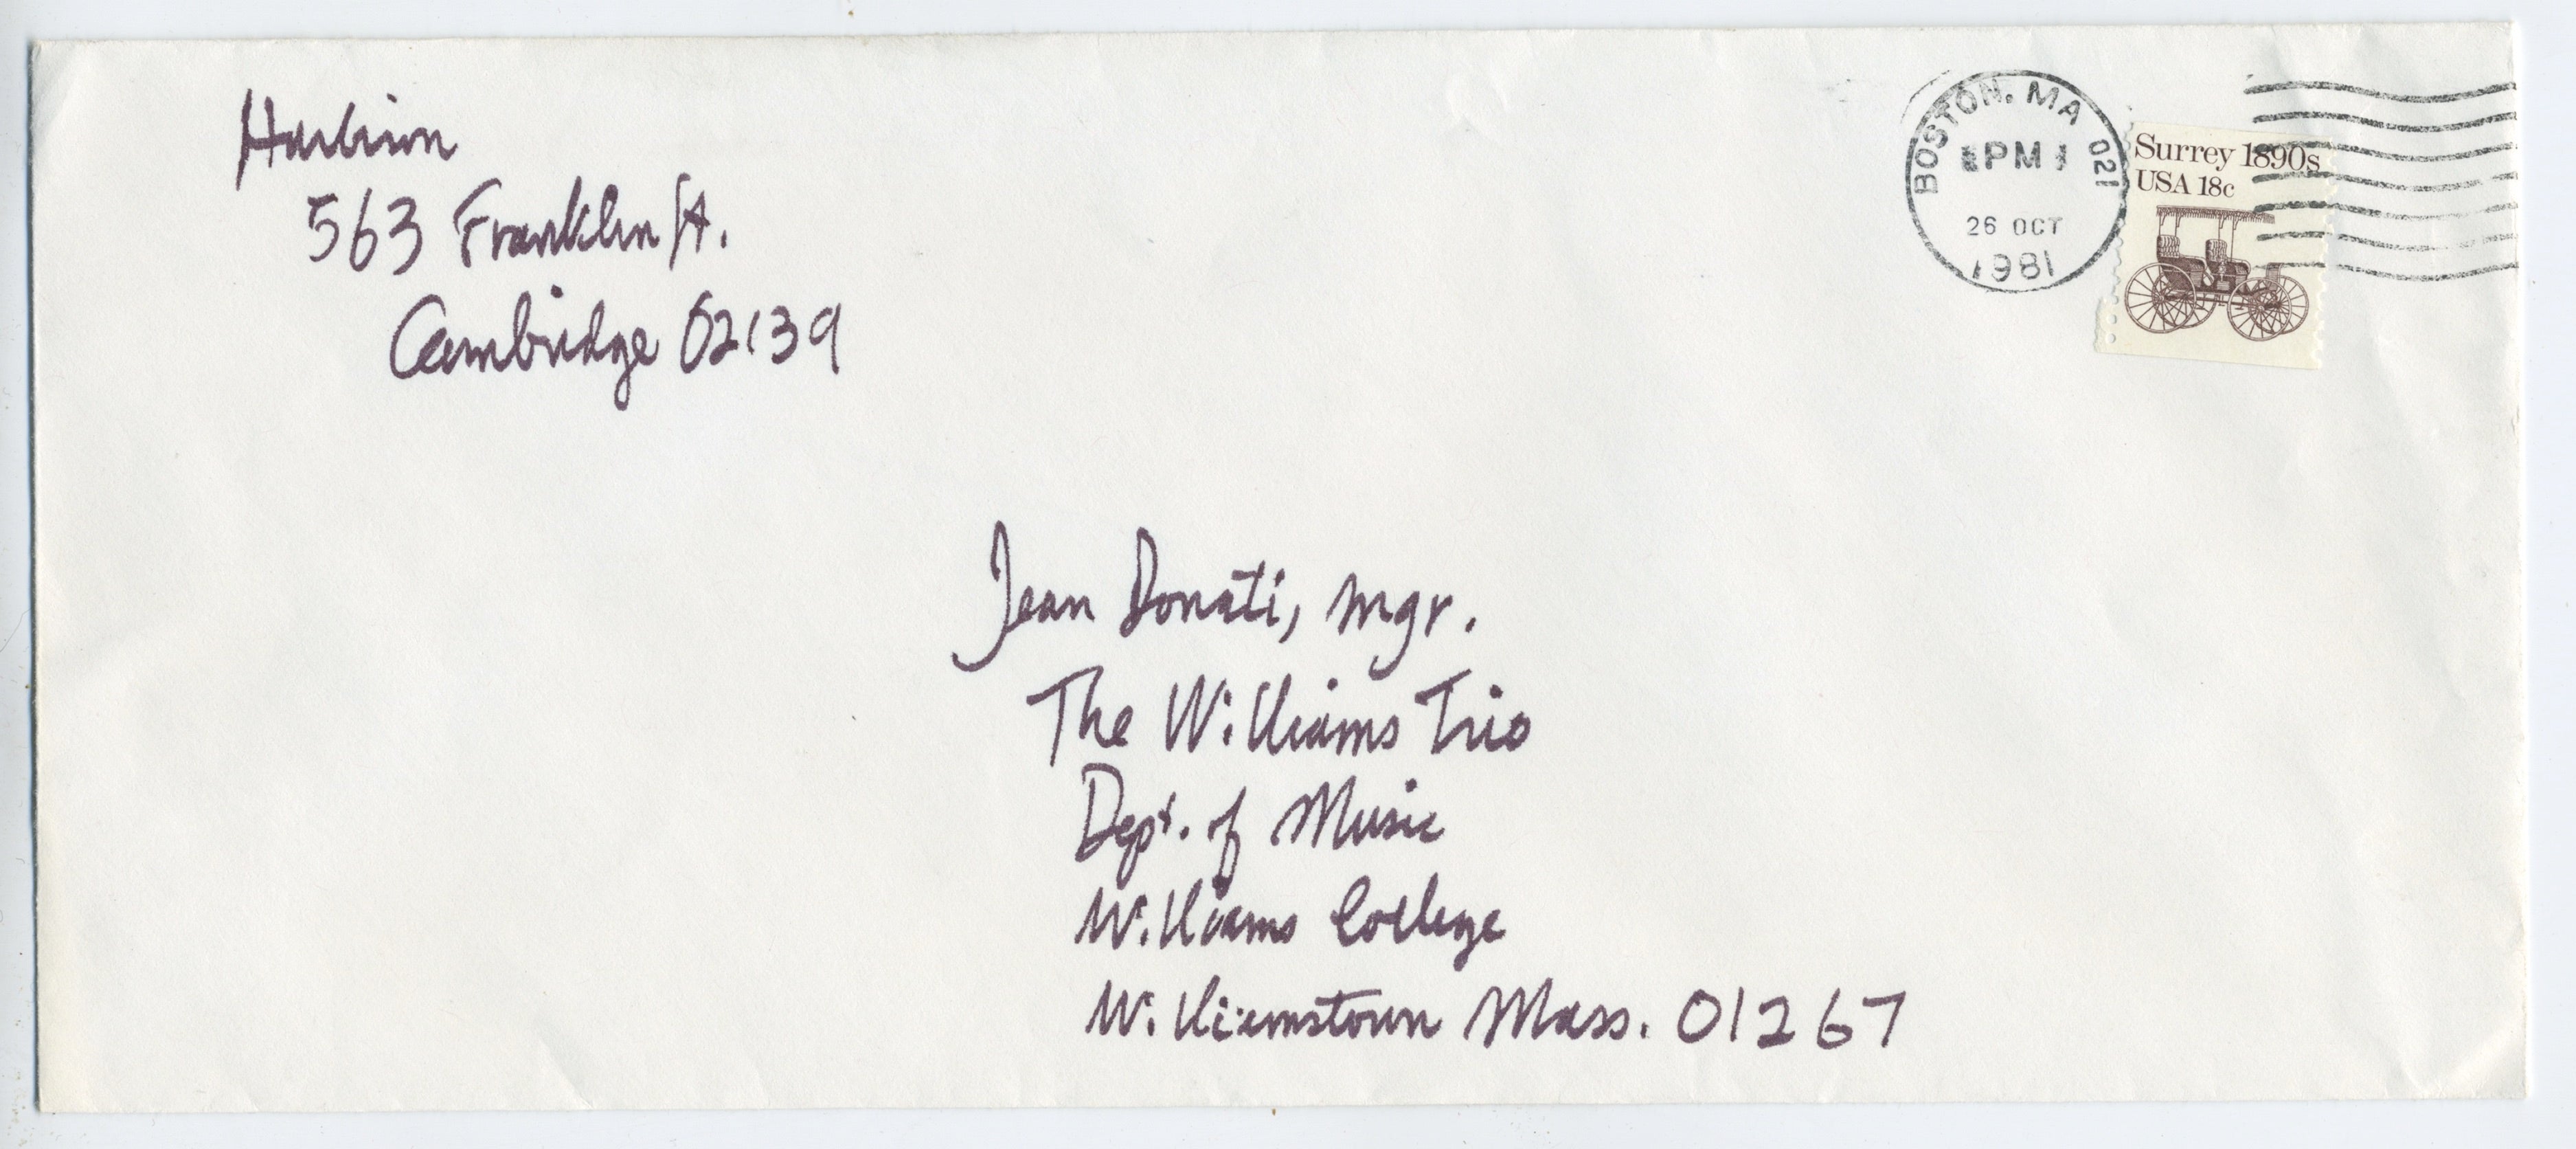 Harbison
563 Franklin St.
Cambridge 02139
BOSTON, MA 021
PM
26 OCT
1981
Surrey 1890s
USA 18c
Jean Donati, mgr.
The Williams Trio
Dept. of Music
Williams College
Williamstown Mass. 01267